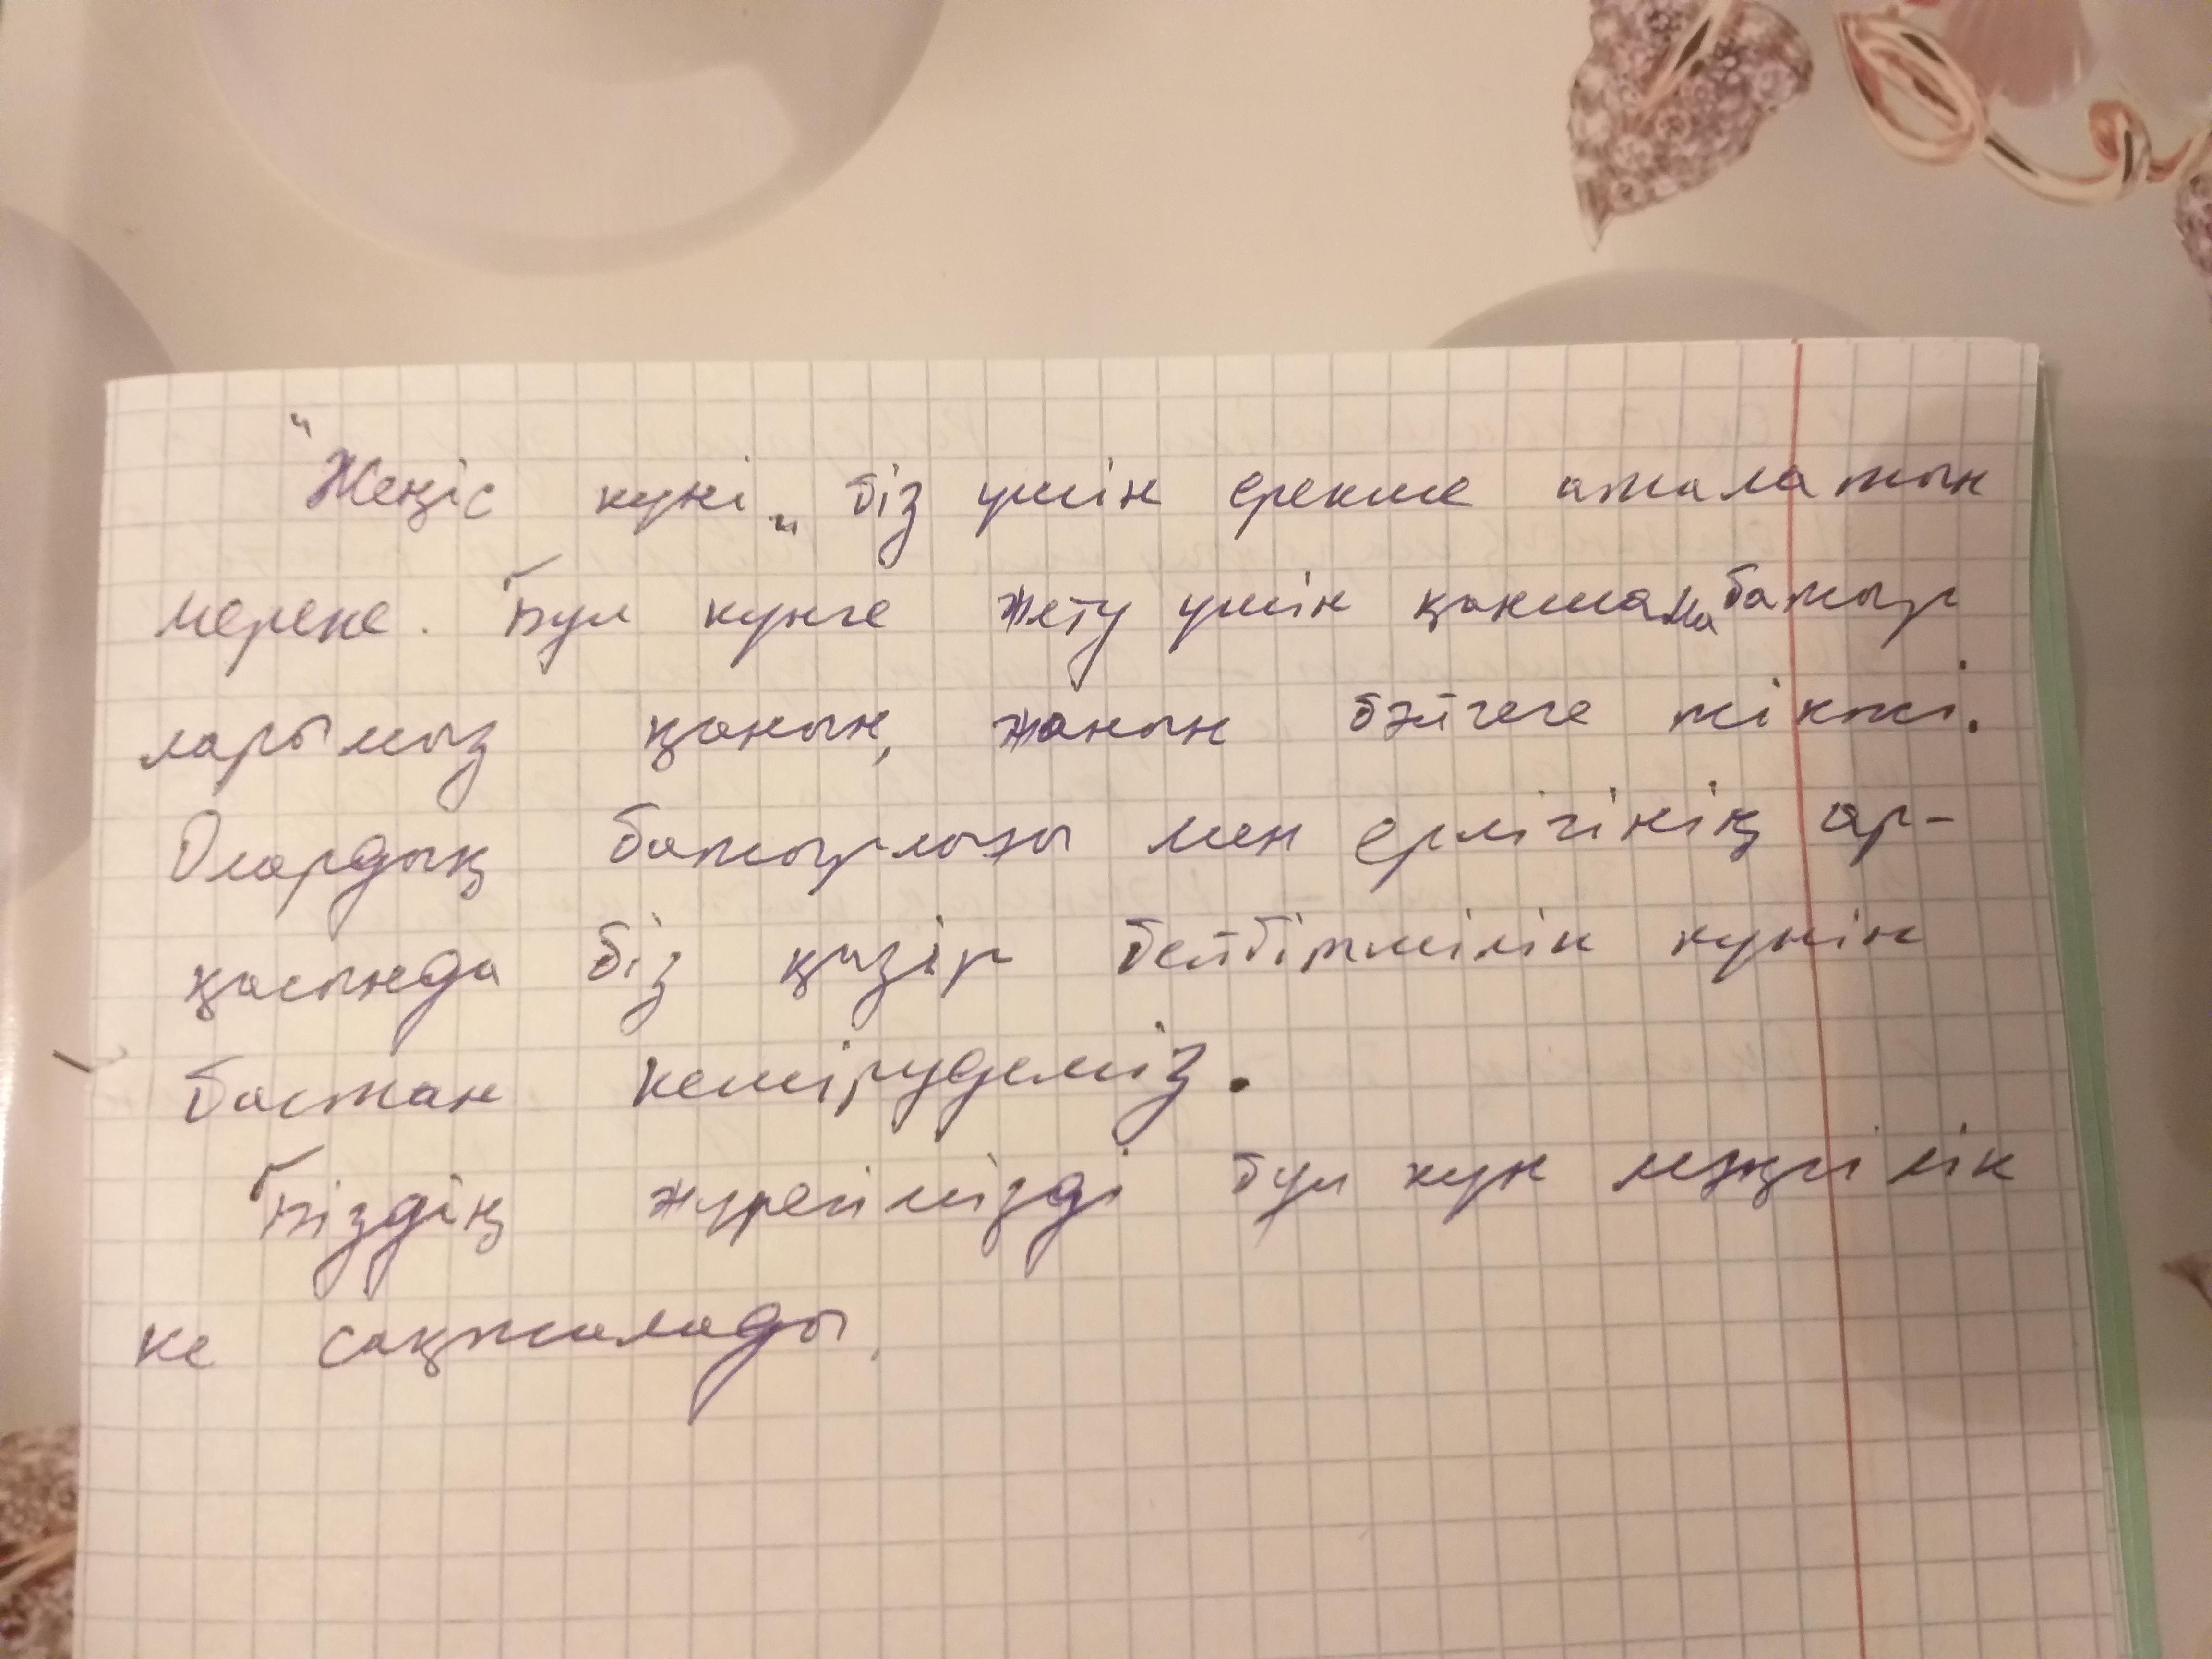 "Жеңіс күні„ біз үшін ерекше аталатын
мереке. Бұл күнге жету үшін қаншама батыр
ларымыз қанын, жанын бәйгеге тікті.
Олардың батырлығы мен ерлігінің ар-
қасында біз қазір бейбітшілік күнін
бастан кешірудеміз.
Біздің жүрегімізді бұл күн мәңгілік
ке сақталады.